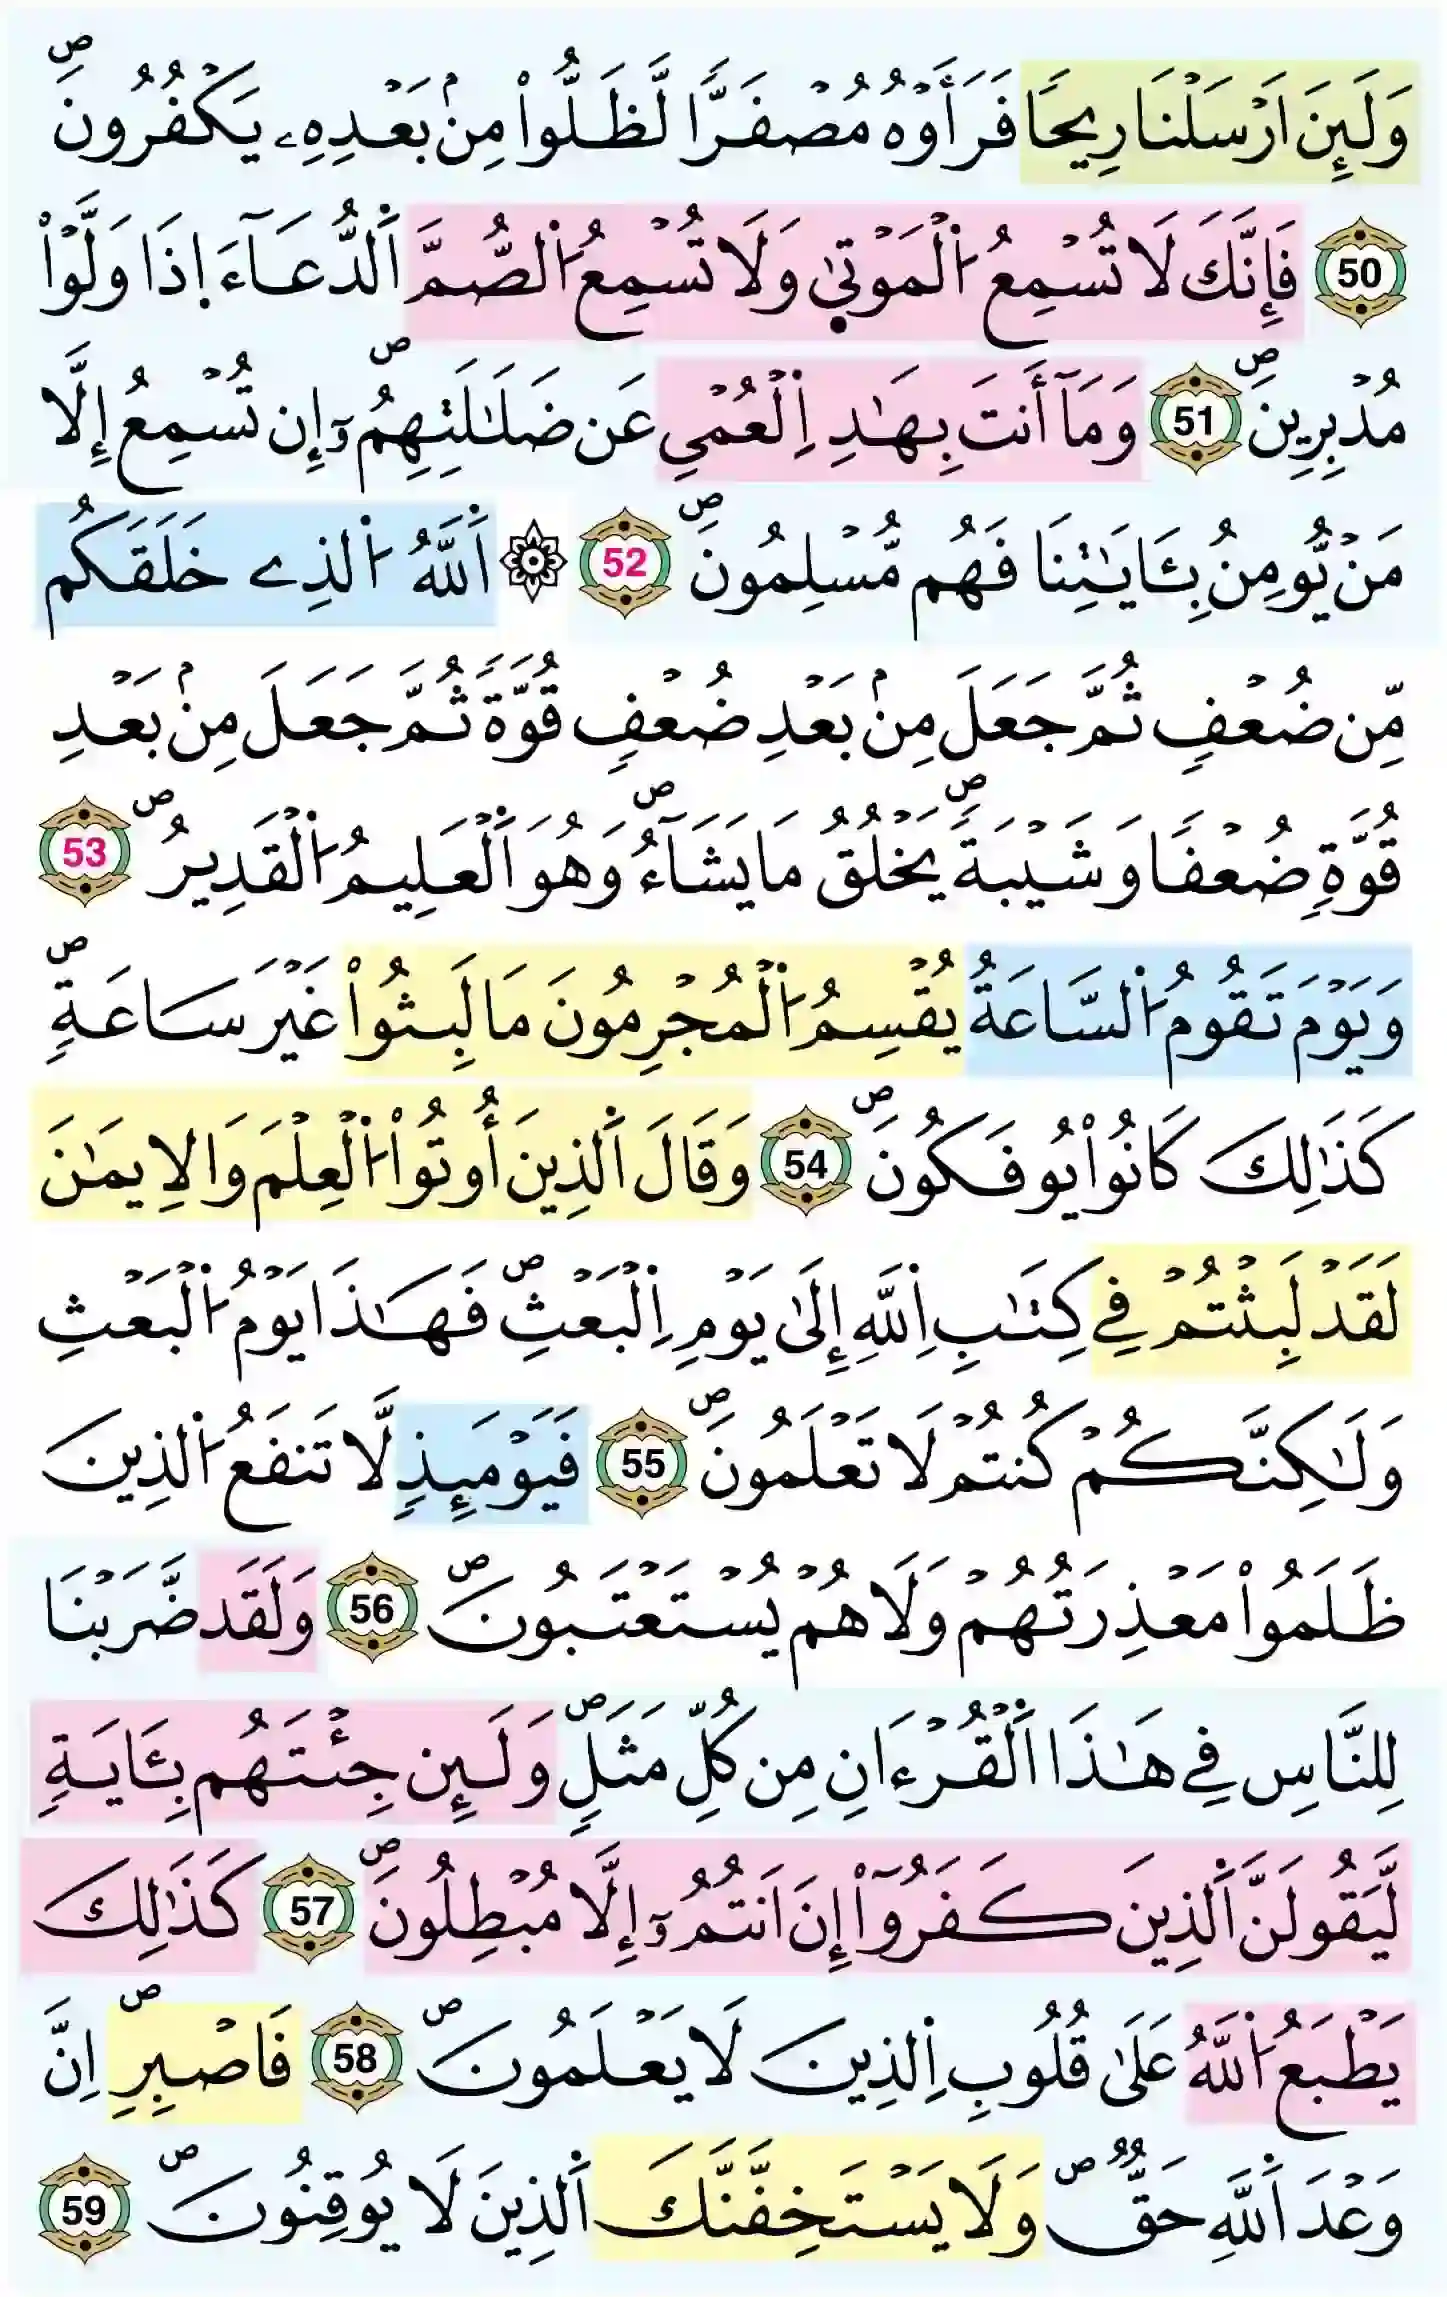 وَلَئِنَ اَرْسَلْنَا رِيحاٗ فَرَأَوْهُ مُصْفَرّاٗ لَّظَلُّواْ مِنۢ بَعْدِهِۦ يَكْفُرُونَۖ
50 فَإِنَّكَ لَا تُسْمِعُ اُ۬لْمَوْت۪يٰ وَلَا تُسْمِعُ اُ۬لصُّمَّ اَ۬لدُّعَآءَ اِ۪ذَا وَلَّوْاْ
مُدْبِرِينَۖ 51 وَمَآ أَنتَ بِهَٰدِ اِ۬لْعُمْيِ عَن ضَلَٰلَتِهِمُۥٓۖ إِن تُسْمِعُ إِلَّا
مَنْ يُّومِنُ بِـَٔايَٰتِنَا فَهُم مُّسْلِمُونَۖ 52 ۞ اَ۬للَّهُ اُ۬لذِے خَلَقَكُم
مِّن ضُعْفٖ ثُمَّ جَعَلَ مِنۢ بَعْدِ ضُعْفٖ قُوَّةٗ ثُمَّ جَعَلَ مِنۢ بَعْدِ
قُوَّةٖ ضُعْفاٗ وَشَيْبَةٗۖ يَخْلُقُ مَا يَشَآءُۖ وَهُوَ اَ۬لْعَلِيمُ اُ۬لْقَدِيرُۖ 53
وَيَوْمَ تَقُومُ اُ۬لسَّاعَةُ يُقْسِمُ اُ۬لْمُجْرِمُونَ مَا لَبِثُواْ غَيْرَ سَاعَةٖۖ
كَذَٰلِكَ كَانُواْ يُوفَكُونَۖ 54 وَقَالَ اَ۬لذِينَ أُوتُواْ اُ۬لْعِلْمَ وَالِايمَٰنَ
لَقَدْ لَبِثْتُمْ فِے كِتَٰبِ اِ۬للَّهِ إِلَىٰ يَوْمِ اِ۬لْبَعْثِۖ فَهَٰذَا يَوْمُ اُ۬لْبَعْثِ
وَلَٰكِنَّكُمْ كُنتُمْ لَا تَعْلَمُونَۖ 55 فَيَوْمَئِذٖ لَّا تَنفَعُ اُ۬لذِينَ
ظَلَمُواْ مَعْذِرَتُهُمْ وَلَا هُمْ يُسْتَعْتَبُونَۖ 56 وَلَقَد ضَّرَبْنَا
لِلنَّاسِ فِے هَٰذَا اَ۬لْقُرْءَانِ مِن كُلِّ مَثَلٖۖ وَلَئِن جِئْتَهُم بِـَٔايَةٖ
لَّيَقُولَنَّ اَ۬لذِينَ كَفَرُوٓاْ إِنَ اَنتُمُۥٓ إِلَّا مُبْطِلُونَۖ 57 كَذَٰلِكَ
يَطْبَعُ اُ۬للَّهُ عَلَىٰ قُلُوبِ اِ۬لذِينَ لَا يَعْلَمُونَۖ 58 فَاصْبِرِۖ اِنَّ
وَعْدَ اَ۬للَّهِ حَقّٞۖ وَلَا يَسْتَخِفَّنَّكَ اَ۬لذِينَ لَا يُوقِنُونَۖ 59